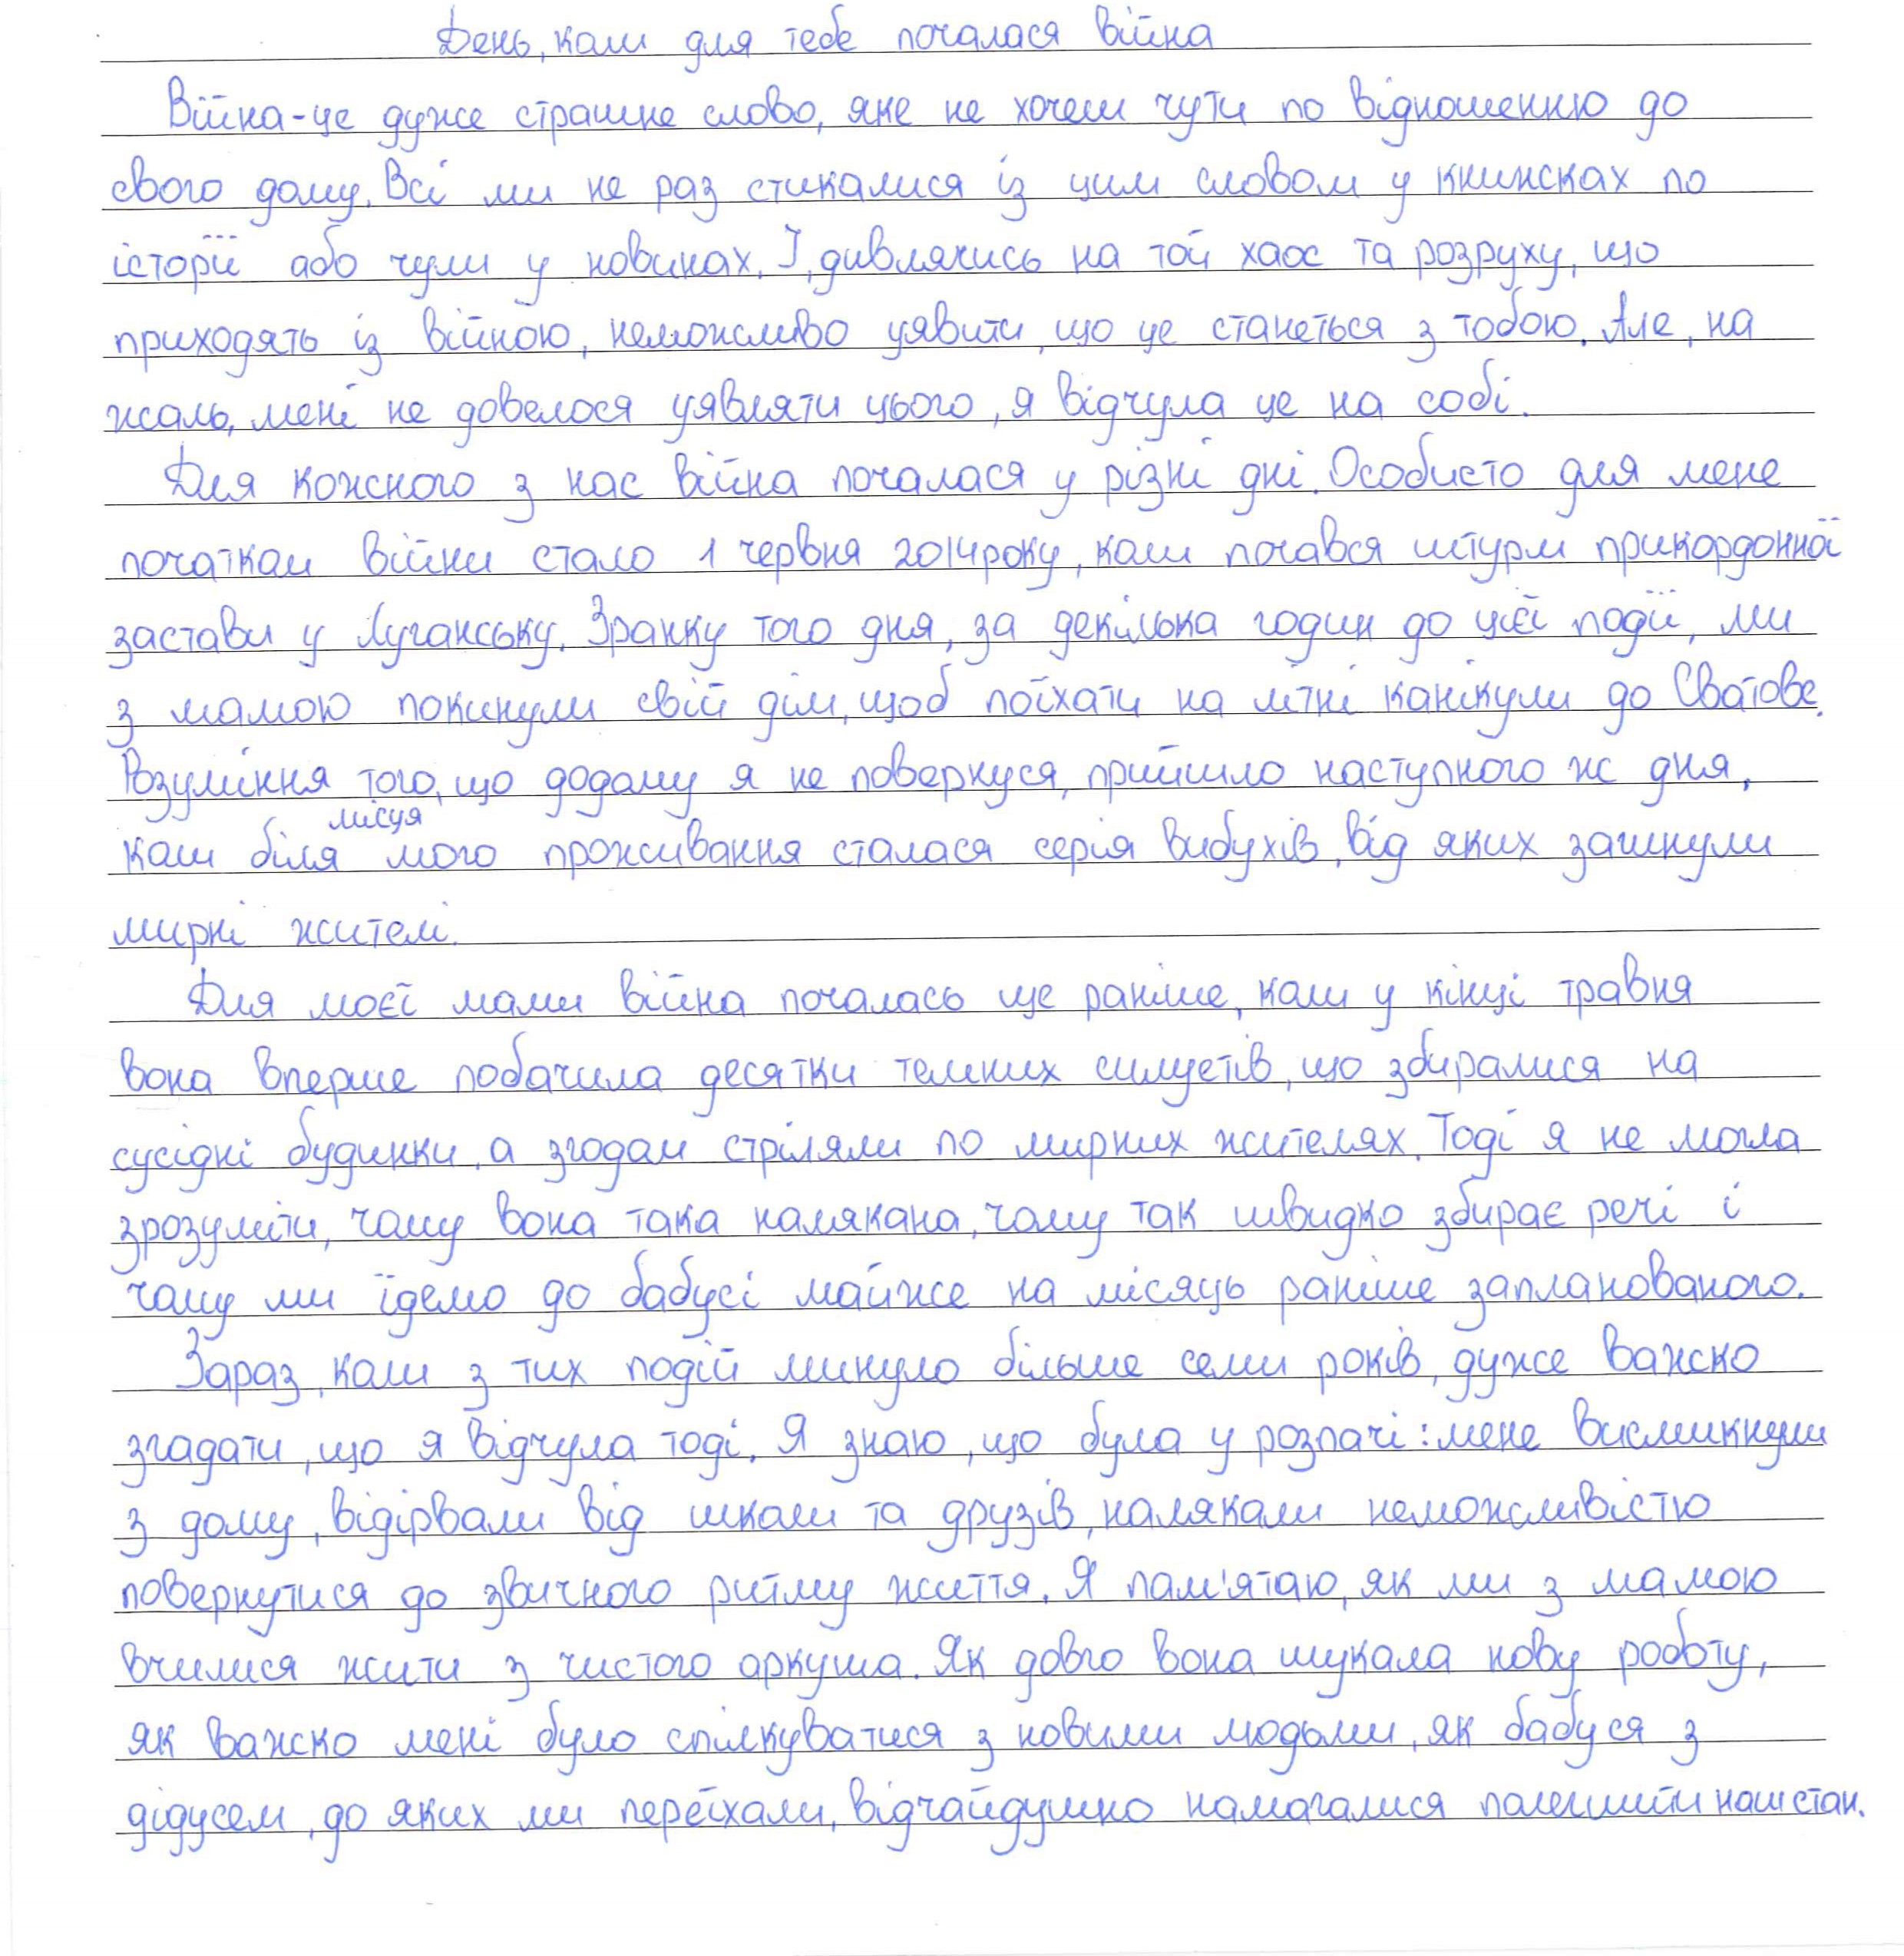 День, коли для тебе почалася війна
Війна-це дуже страшне слово, яке не хочеш чути по відношенню до
свого дому. Всі ми не раз стикалися із цим словом у книжках по
історії або чули у новинах. І, дивлячись на той хаос та розруху, що
приходять із війною, неможливо уявити, що це станеться з тобою. Але, на
жаль, мені не довелося уявляти цього, я відчула це на собі.
Для кожного з нас війна почалася у різні дні. Особисто для мене
початком війни стало 1 червня 2014 року, коли почався штурм прикордонної
застави у Луганську. Зранку того дня, за декілька годин до цієї події, ми
з мамою покинули свій дім, щоб поїхати на літні канікули до Сватове.
Розуміння того, що додому я не повернуся, прийшло наступного ж дня,
коли біля місця мого проживання сталася серія вибухів, від яких загинули
мирні жителі.
Для моєї мами війна почалась ще раніше, коли у кінці травня
вона вперше побачила десятки темних силуетів, що збиралися на
сусідні будинки, а згодом стріляли по мирних жителях. Тоді я не могла
зрозуміти, чому вона така налякана, чому так швидко збирає речі і
чому ми їдемо до бабусі майже на місяць раніше запланованого.
Зараз, коли з тих подій минуло більше семи років, дуже важко
згадати, що я відчула тоді. Я знаю, що була у розпачі: мене висмикнули
з дому, відірвали від школи та друзів, налякали неможливістю
повернутися до звичного ритму життя. Я пам'ятаю, як ми з мамою
вчилися жити з чистого аркуша. Як довго вона шукала нову роботу,
як важко мені було спілкуватися з новими людьми, як бабуся з
дідусем, до яких ми переїхали, відчайдушно намагалися полегшити наш стан.